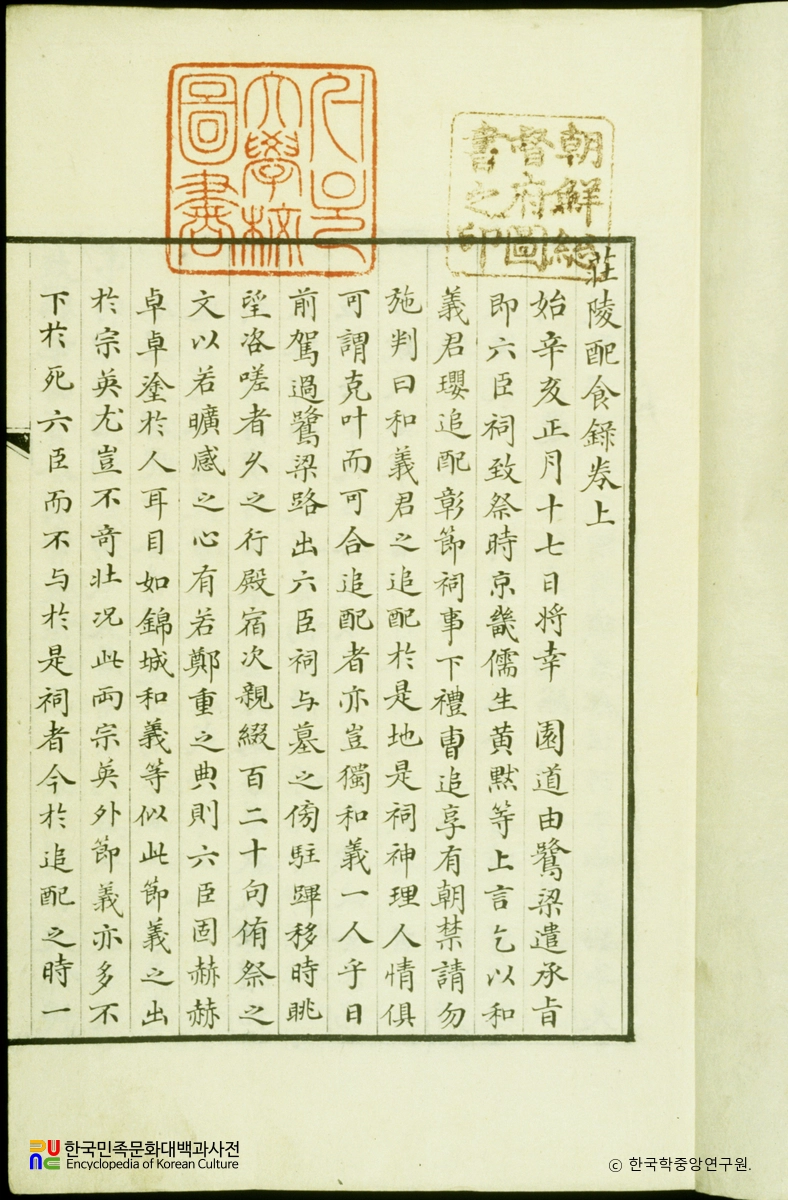 朝鮮総
督府圖
書之印
서울
大學校
圖書
莊陵配食錄券上
始辛亥正月十七日將幸　園道由鷺梁遣承旨
即六臣祠致祭時京畿儒生黃默等上言乞以和
義君瓔追配彰節祠事下禮曹追享有朝禁請勿
施判曰和義君之追配於是地是祠神理人情俱
可謂克叶而可合追配者亦豈獨和義一人乎日
前駕過鷺梁路出六臣祠与墓之傍駐蹕移時眺
望咨嗟者久之行殿宿次親綴百二十句侑祭之
文以若曠感之心有若鄭重之典則六臣固赫赫
卓卓塗於人耳目如錦城和義等似此節義之出
於宗英尤豈不奇壯况此兩宗英外節義亦多不
下於死六臣而不与於是祠者今於追配之時一
한국민족문화대백과사전
Encyclopedia of Korean Culture
© 한국학중앙연구원.